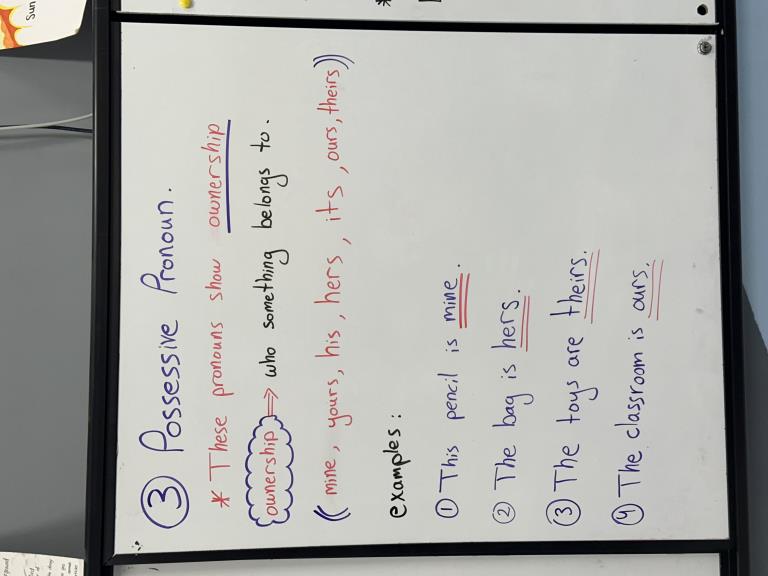 ③ Possessive Pronoun.
* These pronouns show ownership
ownership ⇒ who something belongs to.
(( mine, yours, his, hers, its, ours, theirs ))
examples:
① This pencil is mine.
② The bag is hers.
③ The toys are theirs.
④ The classroom is ours.
Sun